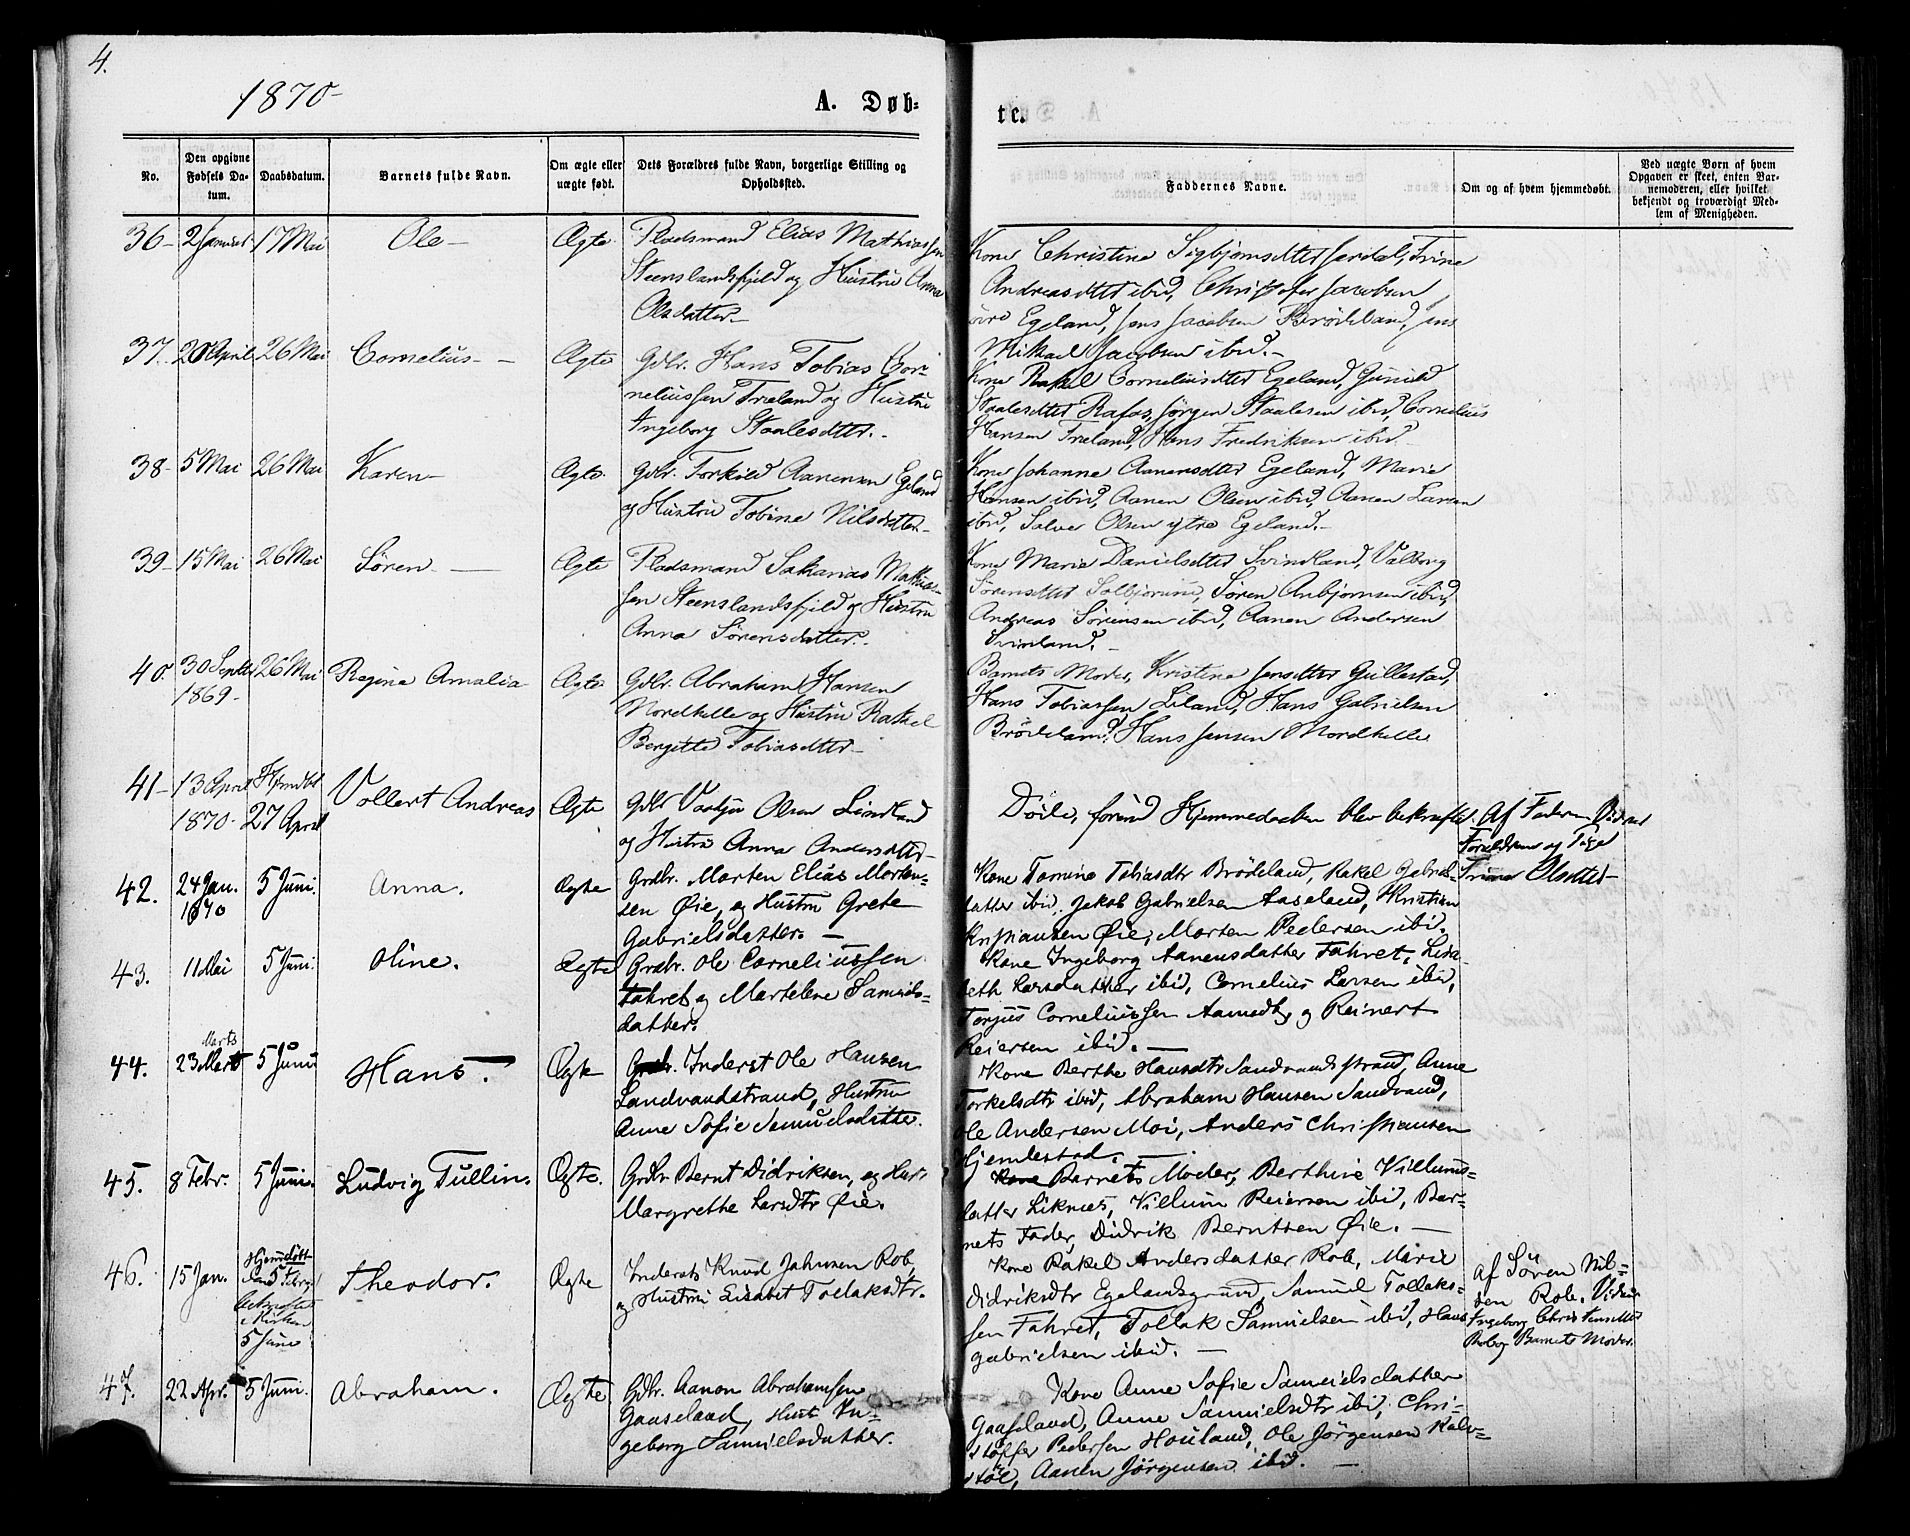 4.
1870-
A. Døb-
te.
No.
Den opgivne Fødsels Datum.
Daabsdatum.
Barnets fulde Navn.
Om ægte eller uægte født.
Dets Forældres fulde Navn, borgerlige Stilling og Opholdssted.
Faddernes Navne.
Om og af hvem hjemmedøbt.
Ved uægte Børn af hvem Opgaven er skeet, enten Barnemoderen, eller hvilket bekjendt og troværdigt Medlem af Menigheden.
36- 2 Januar 17 Mai Ole- Ægte.
Pladsmand Elias Mathiassen
Steenslandsfjeld og Hustru Anna
Olsdatter-
Kone Christine Sigbjørnsdtter Jerdal, Trine
Andreasdtter ibid, Christofer Jacobsen
Egeland, Jens Jacobsen Brødeland,
Mikael Jacobsen ibid.-
37. 20 April 26 Mai Cornelius- Ægte
Gdbr. Hans Tobias Cor-
neliussen Træland og Hustru
Ingeborg Staalesdtter.-
Kone Rakel Corneliusdtter Egeland, Gunild
Staalesdtter Rafos, Jørgen Staalesen ibid, Cornelius
Hansen Træland, Hans Fredriksen ibid-
38- 5 Mai 26 Mai Karen- Ægte.
Gdbr. Torkild Aanensen Egeland
og Hustru Tobine Nilsdatter-
Kone Johanne Aanensdtter Egeland, Marie
Hansen ibid, Aanen Olsen ibid, Aanen Larsen
ibid, Salve Olsen ytre Egeland.-
39- 15 Mai 26 Mai Søren- Ægte
Pladsmand Sakarias Mathias-
sen Steenslandsfjeld og Hustru
Anna Sørensdatter.
Kone Maria Danielsdtter Svindland, Valborg
Sørensdtter Solbjørnu, Søren Anbjørnsen ibid,
Andreas Sørensen ibid, Aanen Andersen
Svindland.-
40. 30 Septbr 1869- 26 Mai Regina Amalia Ægte
Gdbr. Abraham Hansen
Nordhelle og Hustru Rakel
Bergitte Tobiasdtter-
Barnets Moder, Kristine Jensdtter Gullestad,
Hans Tobiassen Liland, Hans Gabrielsen
Brødeland, Hans Jensen Nordhelle
41- 13 April 1870- Hjmdbt 27 April Vollert Andreas Ægte
Gdbr Olsen Lindland
og Hustru Anna Andersdtter-
Døde, førend Hjemmedaaben blev bekræftet.
Af Faderen, Vidner
Forældrene og Pige
Trine Olsdtter-
42. 24 Jan. 1870 5 Juni. Anna. Ægte
Grdbr. Morten Elias Morten-
sen Øie, og Hustru Grete
Gabrielsdatter. -
Kone Tomine Tobiasdtr Brødeland, Rakel Gabriels-
datter ibid, Jakob Gabrielsen Aaseland, Kristian
Kristiansen Øie, Morten Pedersen ibid.
43. 11 Mai 5 Juni. Oline. Ægte
Grdbr. Ole Corneliussen
Fahret og Martelene Samuels-
datter.
Kone Ingeborg Aanensdatter Fahret, Lisa-
beth Larsdatter ibid, Cornelius Larsen ibid,
Torjus Corneliussen Aamodt, og Reinert
Reiersen ibid. -
44. 23 Marts 5 Juni Hans. Ægte
Inderst Ole Hansen
Sandvandstrand, Hustru
Anne Sofie Samuelsdatter.
Kone Berthe Hansdtr Sandvandstrand, Anne
Torkelsdtr ibid, Abraham Hansen Sandvand,
Ole Andersen Moi, Anders Christiansen
Hjemlestad. -
45. 8 Febr. 5 Juni. Ludvig Tullin. Ægte.
Grdbr Bernt Didriksen, og Hust.
Margrethe Larsdtr Øie.
Kone Barnets Moder, Berthine Villums-
datter Liknæs, Villum Reiersen ibid, Bar-
nets Fader, Didrik Berntsen Øie. -
46. 15 Jan. Hjemdøbt den 5 Febr. bekræftet i Kirken 5 Juni Theodor. Ægte
Inderst Knud Johnsen Rob,
og Hustru Elisabet Tollaksdtr.
Kone Rakel Andersdatter Rob, Marie
Didriksdtr Egelandsgrund, Samuel Tollaks-
sen Fahret, Tollak Samuelsen ibid, Hans
Gabrielsen ibid. -
af Søren Nil-
sen Rob. Vidner
Ingeborg Christensdtter
Rob og Barnets Moder.
47. 22 Apr. 5 Juni. Abraham. Ægte.
Gdbr. Aanon Abrahamsen
Gaaseland, Hust In-
geborg Samuelsdatter.
Kone Anne Sofie Samuelsdatter
Gaaseland, Anne Samuelsdtr ibid, Chri-
stoffer Pedersen Houland, Ole Jørgensen Kalv-
støl, Aanen Jørgensen ibid. -